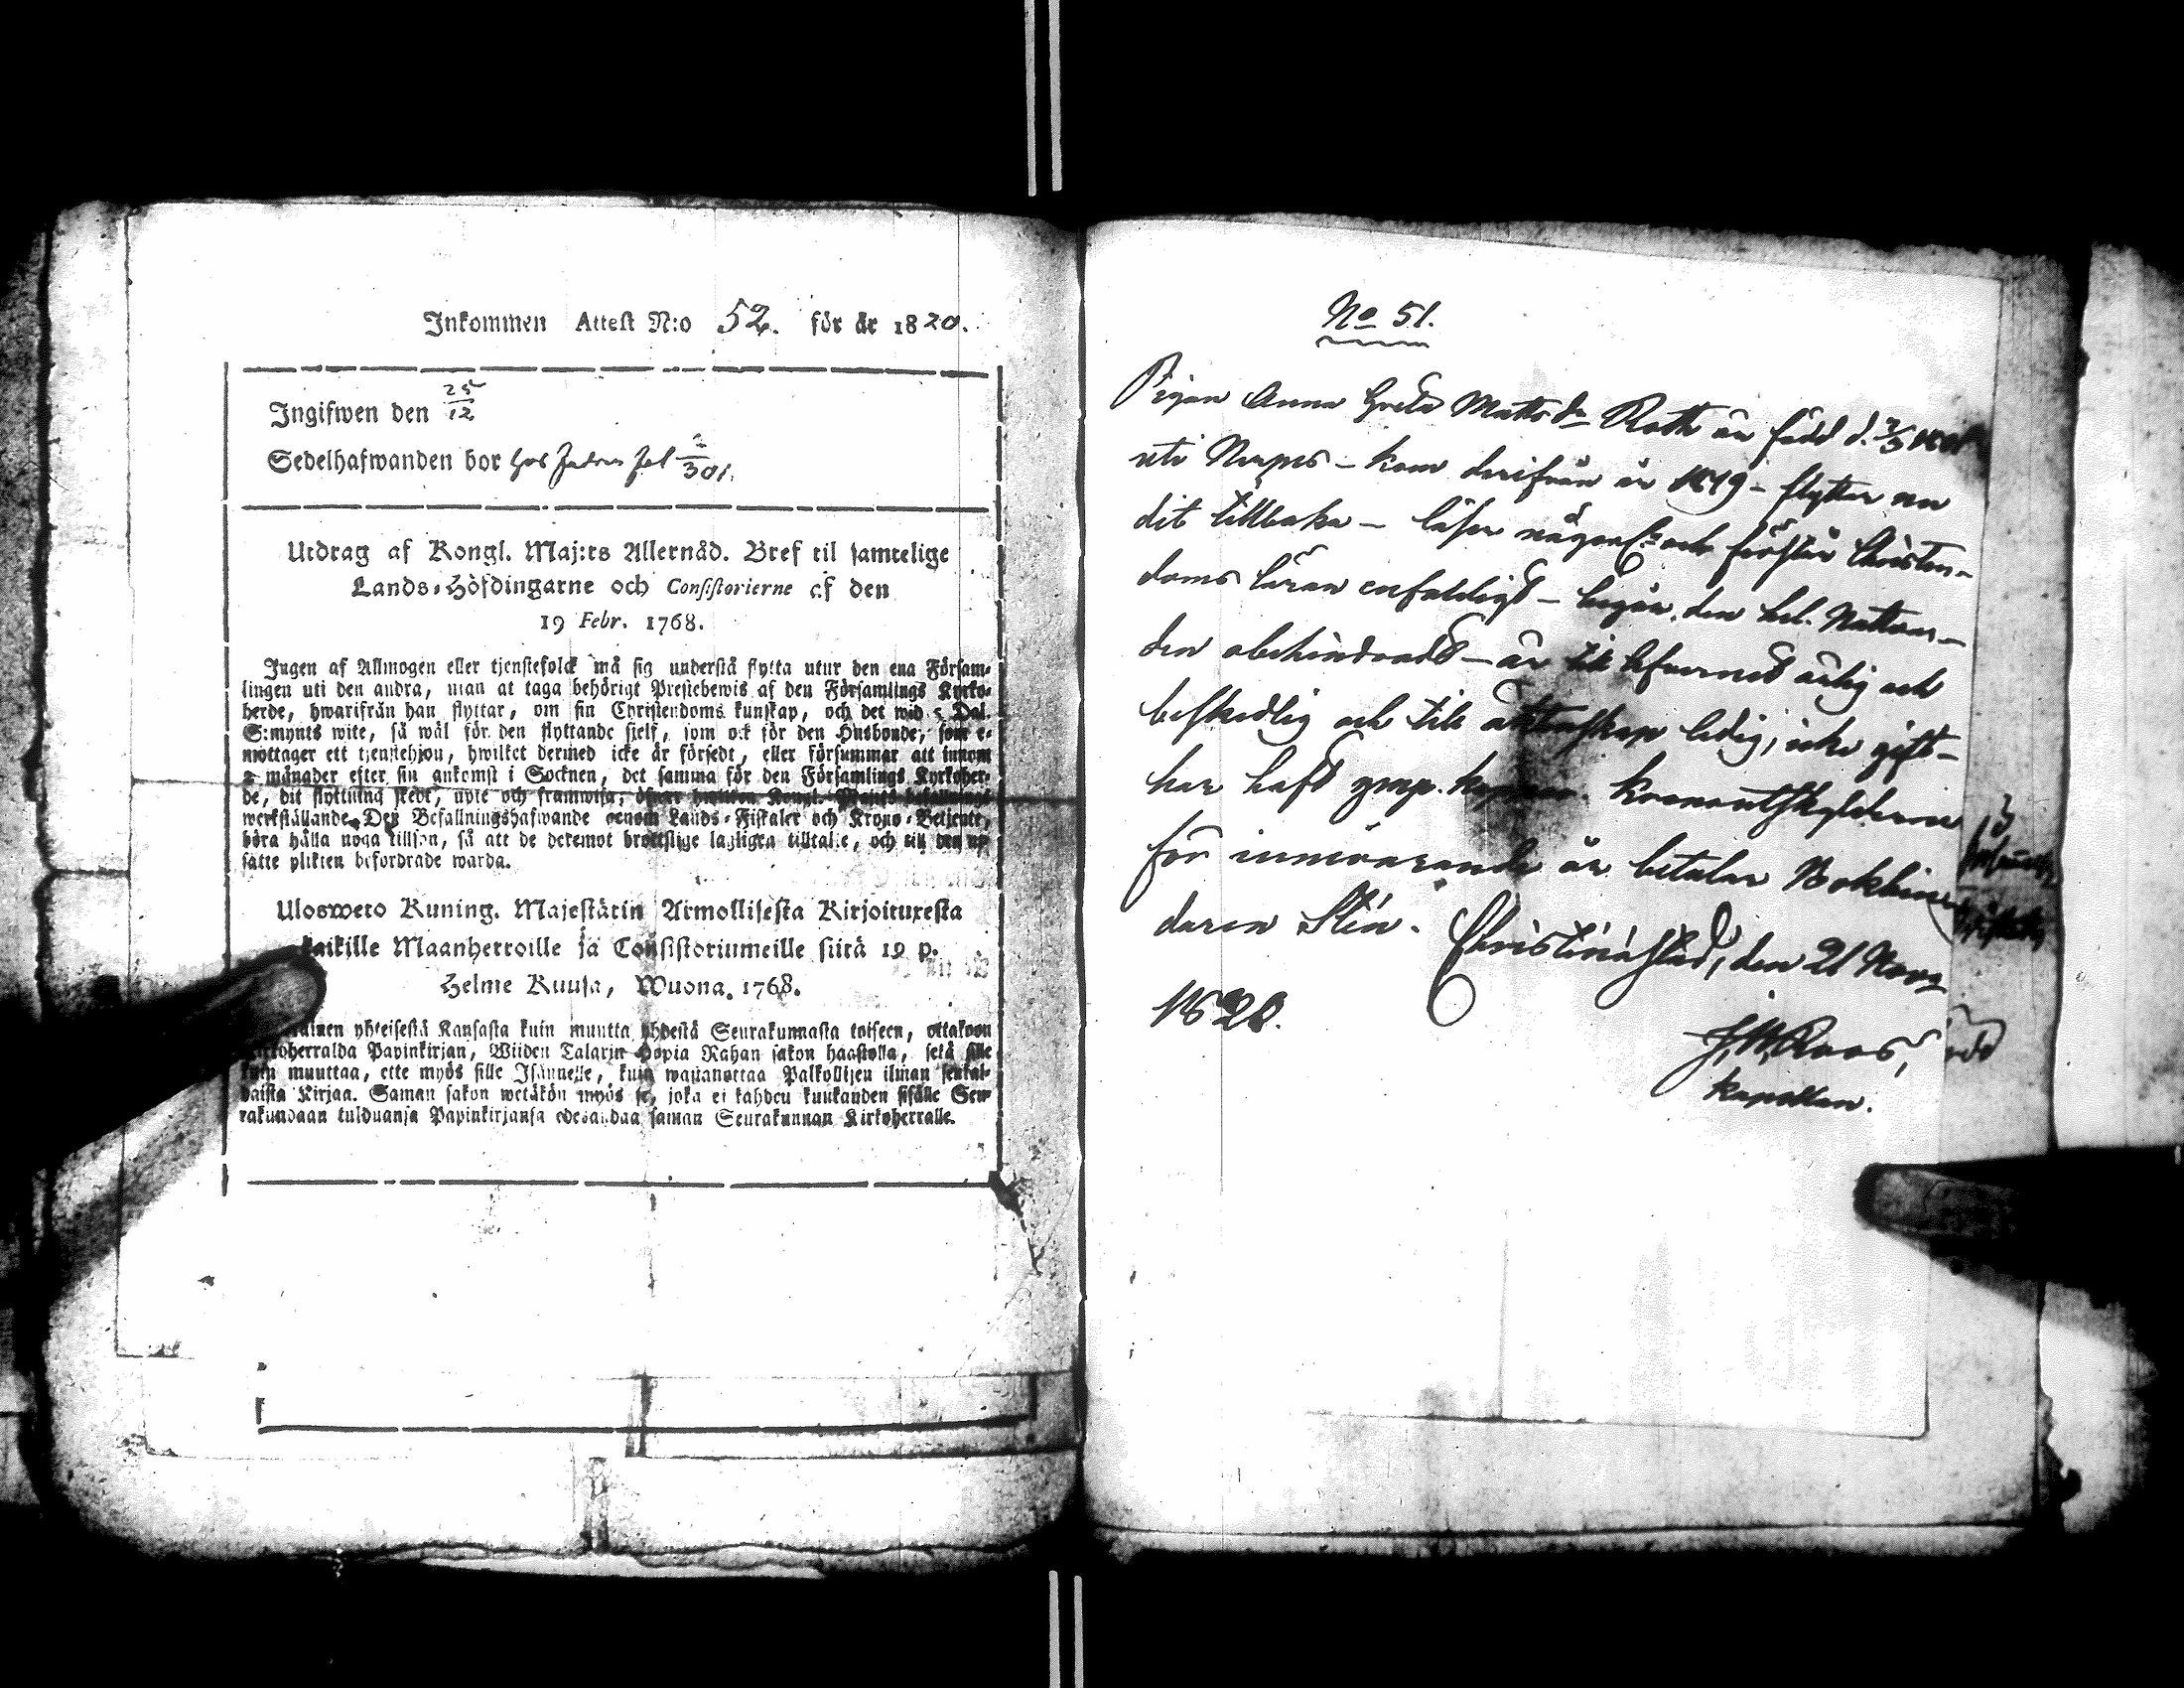 Inkommen Attest N:o 52. för år 1820.
Ingifwen den 25/12
Sedelhafwanden bor hos 301.
Utdrag af Kongl. Maj:ts Allernåd. Bref til samtelige
Lands-Höfdingarne och Consistorierne af den
19 Febr. 1768.
Ingen af Allmogen eller tjenstefolck må sig understå flytta utur den ena Försam-
lingen uti den andra, utan at taga behörigt Prestebewis af den Församlings Kyrko-
herde, hwarifrån han flyttar, om sin Christendoms kunskap, och det wid 5 Dal.
S:mynts wite, så wäl för den flyttande sjelf, som ock för den Husbonde, som e-
mottager ett tjenstehjon, hwilket dermed icke är försedt, eller försummar att innom
2 månader efter sin ankomst i Socknen, det samma för den Församlings Kyrkoher-
de, dit flyttning skedt, upte och framwisa;
werkställande. Den Befallningshafwande genom Lands-Fiskaler och Krono-Betjente,
böra hålla noga tillsyn, så att de deremot brottslige lagligen tilltalte, och till den up
satte plikten befordrade warda.
Uloswero Kuning. Majestätin Armollisesta Kirjoituxesta
kaikille Maanherroille ja Consistoriumeille siitä 19 p.
Helme Kuusa, Wuona. 1768.
yhteisestä Kansasta kuin muutta yhdestä Seurakunnasta toiseen, ottakoon
Kirkoherralda Papinkirjan, Wiiden Talarin Hopia Rahan sakon haastolla, sekä sille
kuin muuttaa, ette myös sille Isännelle, kuin wastanottaa Palkollisen ilman senkal-
daista Kirjaa. Saman sakon wetäkön myös se, joka ei kahden kuukauden sisälle Seu-
rakundaan tulduansa Papinkirjansa edesandaa saman Seurakunnan Kirkoherralle.
No 51.
Pigan Anna Greta Mattsdr Roth är född d.
uti Nerpes - kom derifrån år 1819 - flyttar nu
dit tillbaka - läser och förstår Christen-
doms läran enfaldigt - begår den hel. Nattvar-
den obehindradt - är till lefvernet ärlig och
beskedlig och till äktenskap ledig, icke gift -
har haft Kronoutskylderne
för innevarande år betalar Bokbin
daren Sten. Christinæstad, den 21 Nov:
1820.
J. M. Roos,
kapellan.